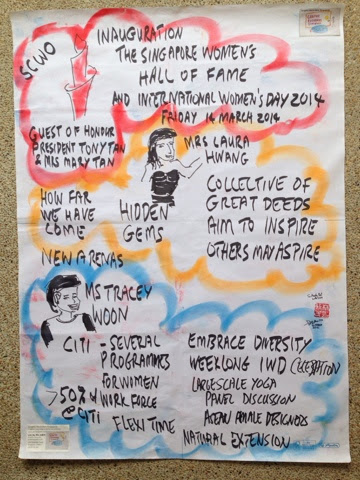 SCWO
INAUGURATION
THE SINGAPORE WOMEN'S
HALL OF FAME
AND INTERNATIONAL WOMEN'S DAY 2014
FRIDAY 14 MARCH 2014
GUEST OF HONOUR
PRESIDENT TONY TAN
& MRS MARY TAN
MRS LAURA
HWANG
HOW FAR
WE HAVE
COME
HIDDEN
GEMS
NEW ARENAS
COLLECTIVE OF
GREAT DEEDS
AIM TO INSPIRE
OTHERS MAY ASPIRE
MS TRACEY
WOON
CITI - SEVERAL
PROGRAMMES
FOR WOMEN
>50% of WORK FORCE
@ CITI
FLEXI TIME
EMBRACE DIVERSITY
WEEKLONG IWD CELEBRATION
LARGESCALE YOGA
PANEL DISCUSSION
ASEAN FEMALE DESIGNERS
NATURAL EXTENSION